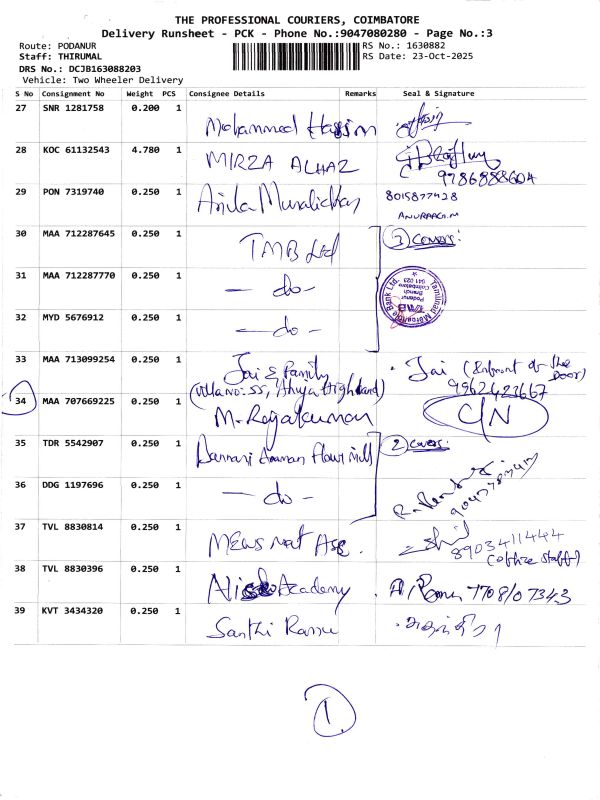 THE PROFESSIONAL COURIERS, COIMBATORE
Delivery Runsheet - PCK - Phone No.:9047080280 - Page No.:3
Route: PODANUR
RS No.: 1630882
Staff: THIRUMAL
RS Date: 23-Oct-2025
DRS No.: DCJB163088203
Vehicle: Two Wheeler Delivery
S No Consignment No Weight PCS Consignee Details Remarks Seal & Signature
27 SNR 1281758 0.200 1 Mohammed Hassim
28 KOC 61132543 4.780 1 MIRZA ALHAZ
9786888604
29 PON 7319740 0.250 1 Anila Muralidhar 8015877428
ANURAAG.M
30 MAA 712287645 0.250 1 TMB Ltd (3) covers:
31 MAA 712287770 0.250 1 - do -
Tamilnad Mercantile Bank Ltd.
TMB
Podanur
Branch
Coimbatore
641 023
32 MYD 5676912 0.250 1 - do -
33 MAA 713099254 0.250 1 Jai & Family Jai (Infront of the Door)
(Villa no: 55, Ahuja Highland) 9962423667
34 MAA 707669225 0.250 1 M. Rajakumar C/N
35 TDR 5542907 0.250 1 Bannari Amman Flour Mill (2) covers:
36 DDG 1197696 0.250 1 - do -
37 TVL 8830814 0.250 1 8903411444
(office staff)
38 TVL 8830396 0.250 1 Academy 7708107343
39 KVT 3434320 0.250 1 Santhi
1